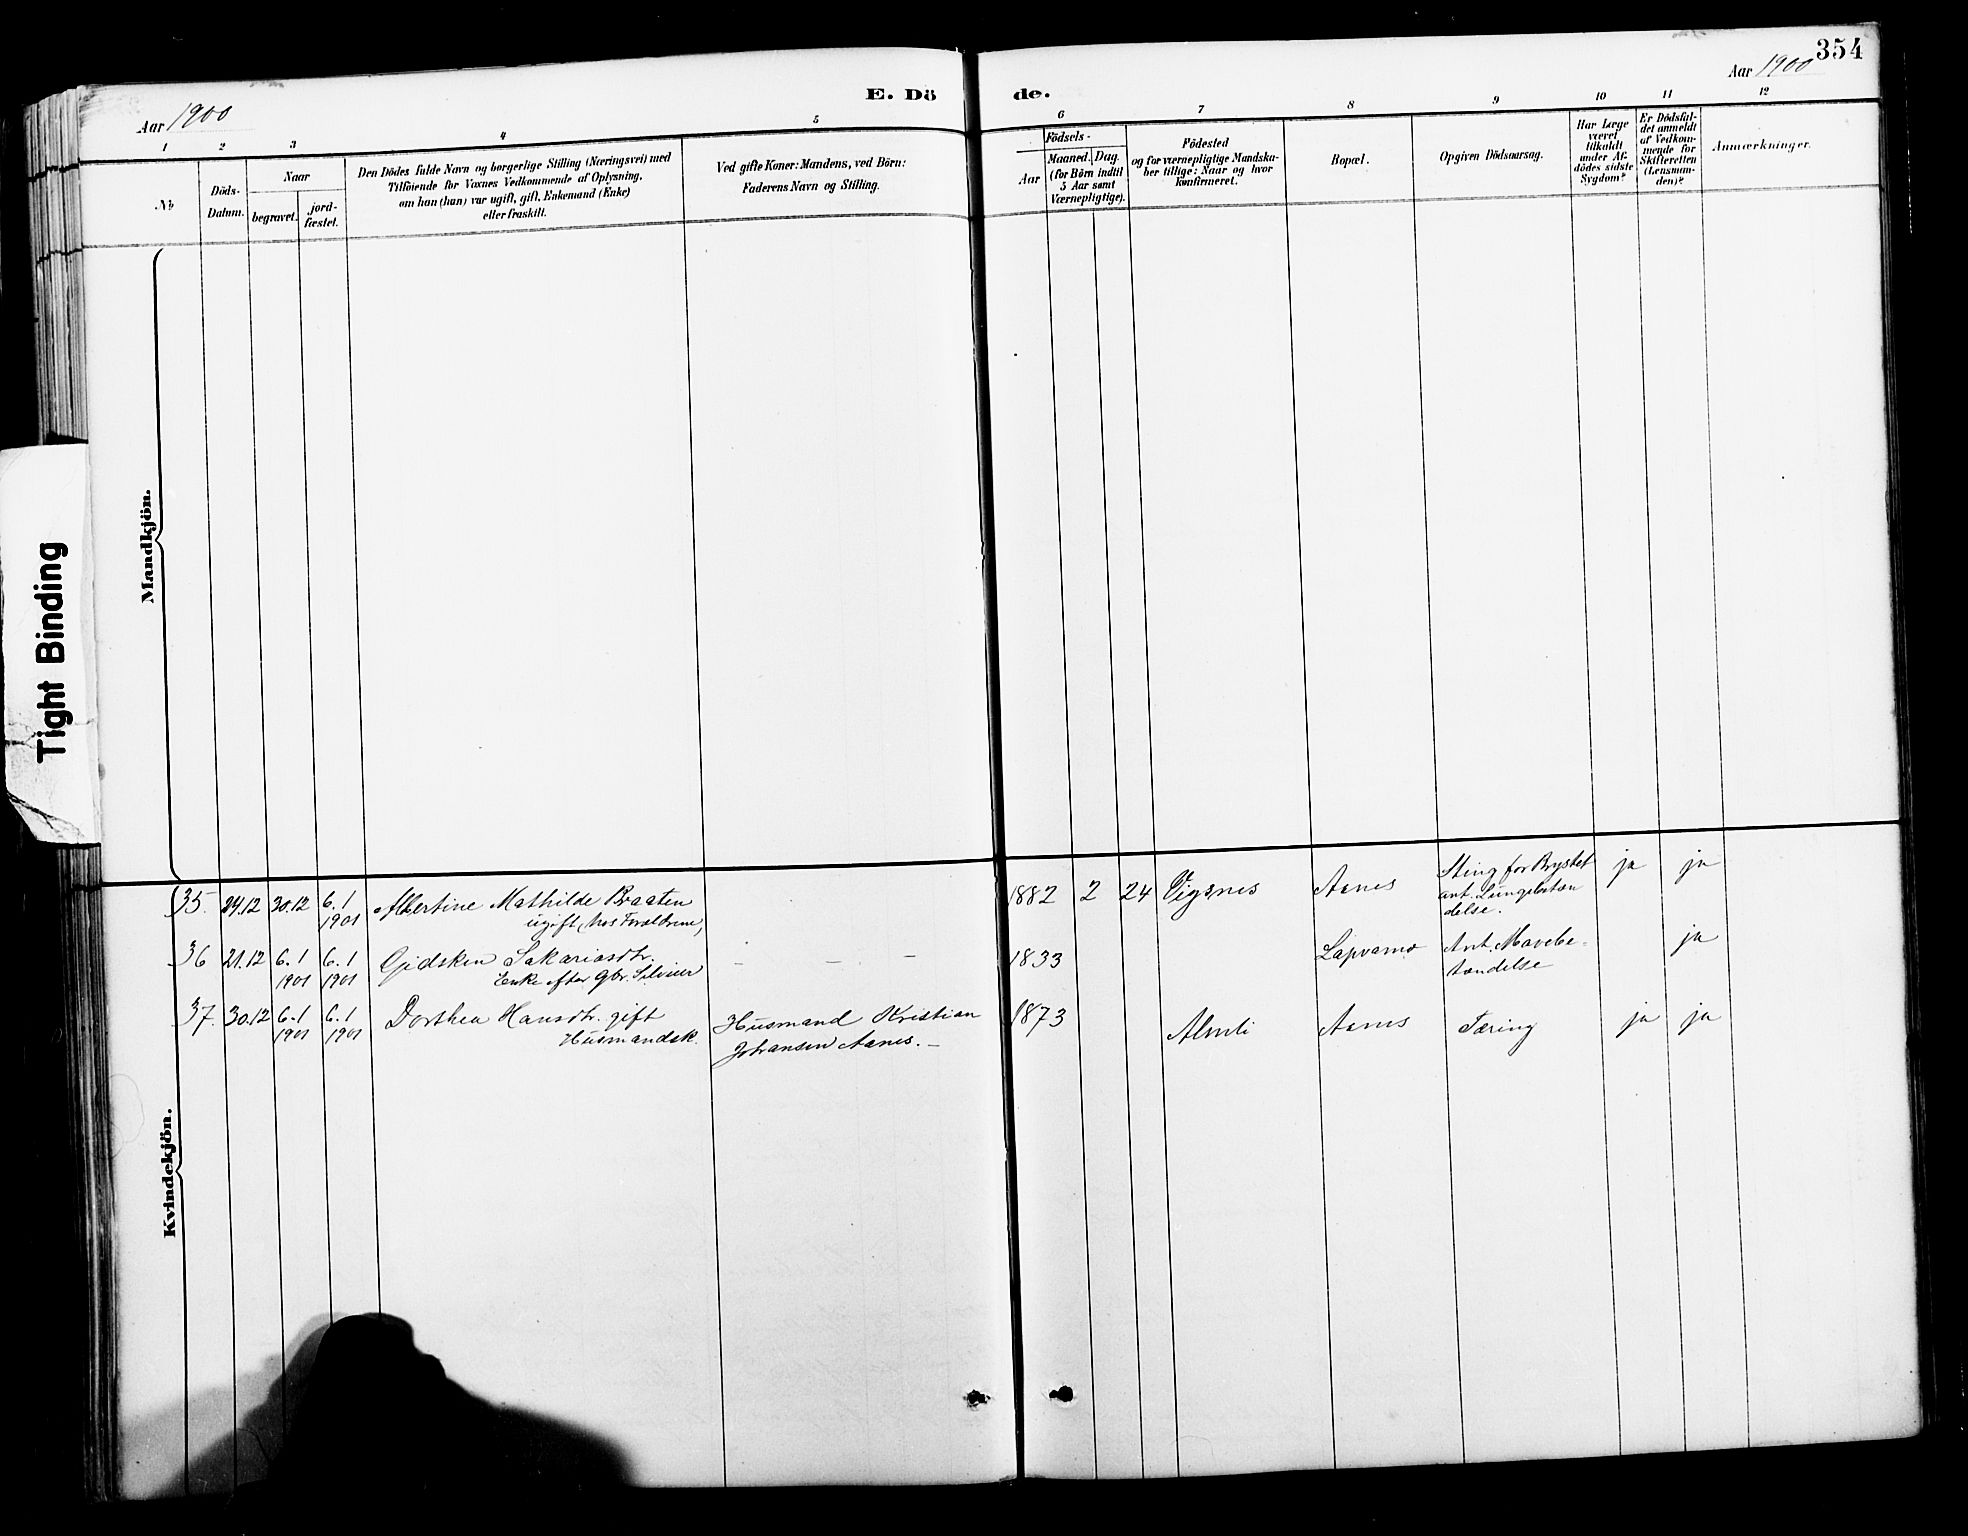 354
Aar 1900
Aar 1900
E. Dö
de.
1 2 3 4 5
6 7 8 9 10 11 12
No
Döds-
Datum.
Naar
begravet.
jord-
fæstet.
Den Dödes fulde Navn og borgerlige Stilling (Næringsvei) med
Tilföiende for Voxnes Vedkommende af Oplysning,
om han (hun) var ugift, gift, Enkemand (Enke)
eller fraskilt.
Ved gifte Koner: Mandens, ved Börn:
Faderens Navn og Stilling.
Födsels-
Aar
Maaned. Dag.
(for Börn indtil
5 Aar samt
Værnepligtige).
Födested
og for værnepligtige Mandska-
ber tillige: Naar og hvor
Konfirmeret.
Bopæl.
Opgiven Dödsaarsag.
Har Læge
været
tilkaldt
under Af-
dödes sidste
Sygdom?
Er Dödsfal-
det anmeldt
af Vedkom-
mende for
Skifteretten
(Lensman-
den)?
Anmærkninger.
Mandkjön.
Tight Binding
Kvindekjön.
35. 24.12 30.12 6.1 1901 Albertine Mathilde Braaten
ugift, hos Forældrene,
1882 2 24 Vigsnes Aanes Sting for Brystet
ant. Lungebetæn
delse.
ja ja
36 21.12 6.1 1901 6.1 1901 Gidsken Sakariasdtr.
Enke efter gbr. Silvius
- - - 1833 Lapvamo Ant. Mavebe-
tændelse
ja
37. 30.12 6.1 1901 6.1 1901 Dorthea Hansdtr. gift
Husmandsk.
Husmand Kristian
Johansen Aanes. -
1873 Almli Aanes Tæring ja ja